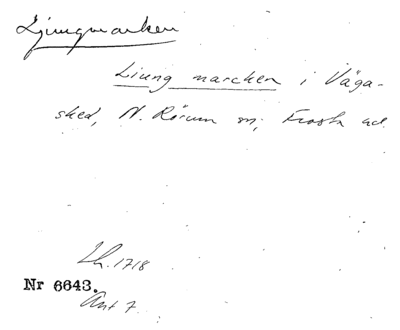 Ljungmarken
Liung marcken i Väga-
sked, N. Rörum sn, Frosta hd.
Lh. 1718
Nr 6643.
Ant 7.